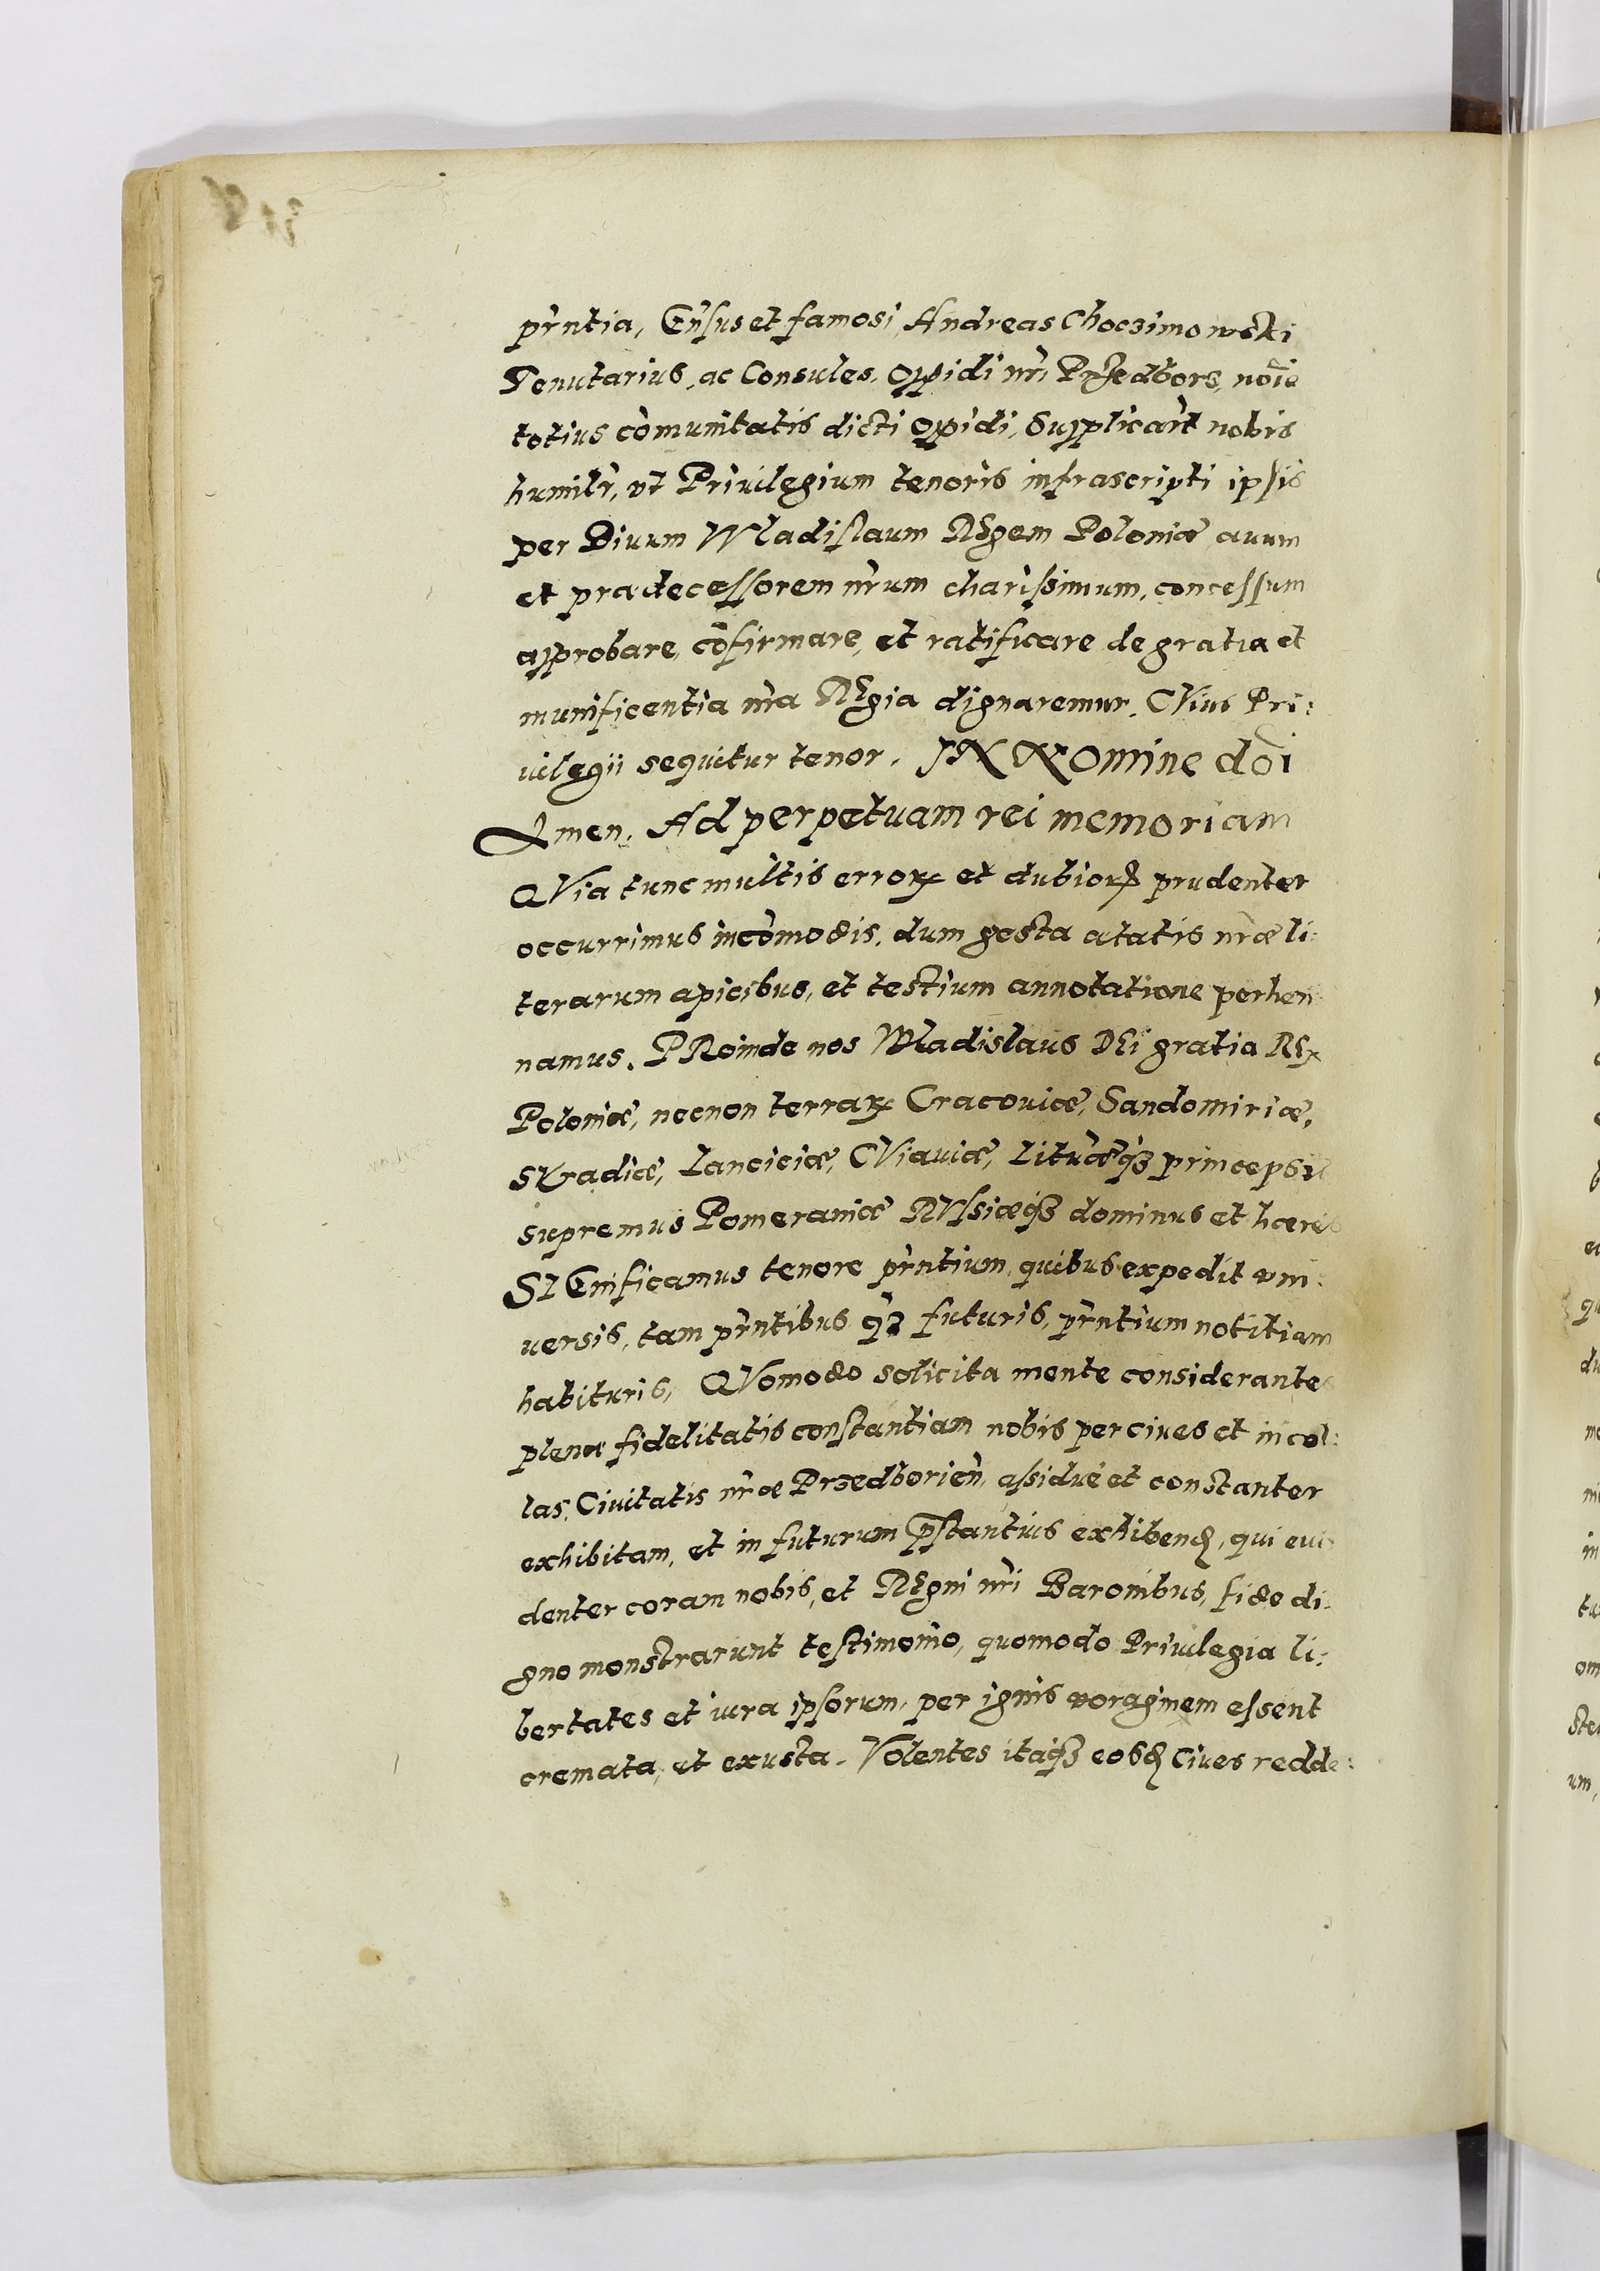 pñntia, Gñsus et famosi Andreas Choczimowski
Tenutarius, ac Consules, Oppidi nr̃i Przedborz, noĩe
totius cõmunitatis dicti oppidi, Supplicarũt nobis
humilr̃, vt Priuilegium tenoris infrascripti ipsis
per Diuum Wladislaum REgem Poloniæ auum
et prædecessorem nr̃um charissimum, concessum
approbare, cõfirmare, et ratificare de gratia et
munificentia nr̃a REgia dignaremur. CVius Pri:
uilegii sequitur tenor. IN Nomine dñi
Amen. Ad perpetuam rei memoriam
QVia tunc multis erroꝝ et dubioꝝ prudenter
occurrimus incõmodis, dum gesta ætatis nr̃æ li:
terarum apicibus, et testium annotatione perhen
namus. PRoinde nos Wladislaus DEi gratia REx
Poloniæ, necnon terraꝝ Cracouiæ, Sandomiriæ,
SYradiæ, Lanciciæ, CViauiæ, Litũæqꝫ princeps
supremus Pomeraniæ RVssiæqꝫ dominus et hæres
SIGnificamus tenore pñntium, quibus expedit vni:
uersis, tam pñntibus qꝫ futuris, pñntium notitiam
habituris, QVomodo solicita mente considerantes
plenæ fidelitatis constantiam nobis per ciues et incol:
las, Ciuitatis nr̃æ Przedborieñ, assidue et constanter
exhibitam, et in futurum p̃stantius exhibend, qui eui
denter coram nobis, et REgni nr̃i Baronibus, fide di:
gno monstrarunt testimonio, quomodo Priuilegia li:
bertates et iura ipsorum, per ignis voraginem essent
cremata, et exusta. Volentes itaqꝫ eosd Ciues redde: